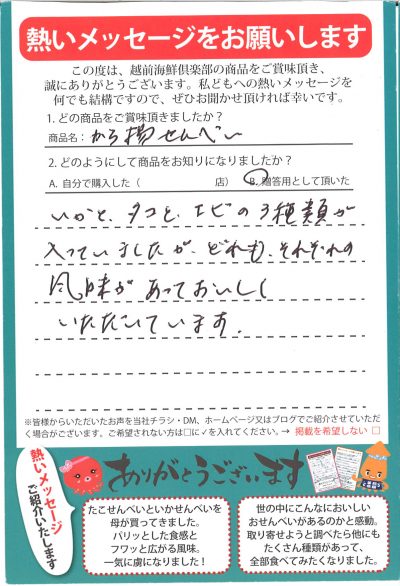 熱いメッセージをお願いします
この度は、越前海鮮倶楽部の商品をご賞味頂き、
誠にありがとうございます。私どもへの熱いメッセージを
何でも結構ですので、ぜひお聞かせ頂ければ幸いです。
1. どの商品をご賞味頂きましたか?
商品名: から揚せんべい
2. どのようにして商品をお知りになりましたか?
A. 自分で購入した ( 店) B. 贈答用として頂いた
いかと、タコと、エビの3種類が
入っていましたが、どれも、それぞれの
風味があっておいしく
いただいています.
※皆様からいただいたお声を当社チラシ・DM、ホームページ又はブログでご紹介させていただ
く場合がございます。ご希望されない方は□に✓を入れてください。→ 掲載を希望しない □
熱いメッセージ
ご紹介いたします
ありがとうございます
たこせんべいといかせんべいを
母が買ってきました。
パリッとした食感と
フワッと広がる風味。
一気に虜になりました!
世の中にこんなにおいしい
おせんべいがあるのかと感動。
取り寄せようと調べたら他にも
たくさん種類があって、
全部食べてみたくなりました。